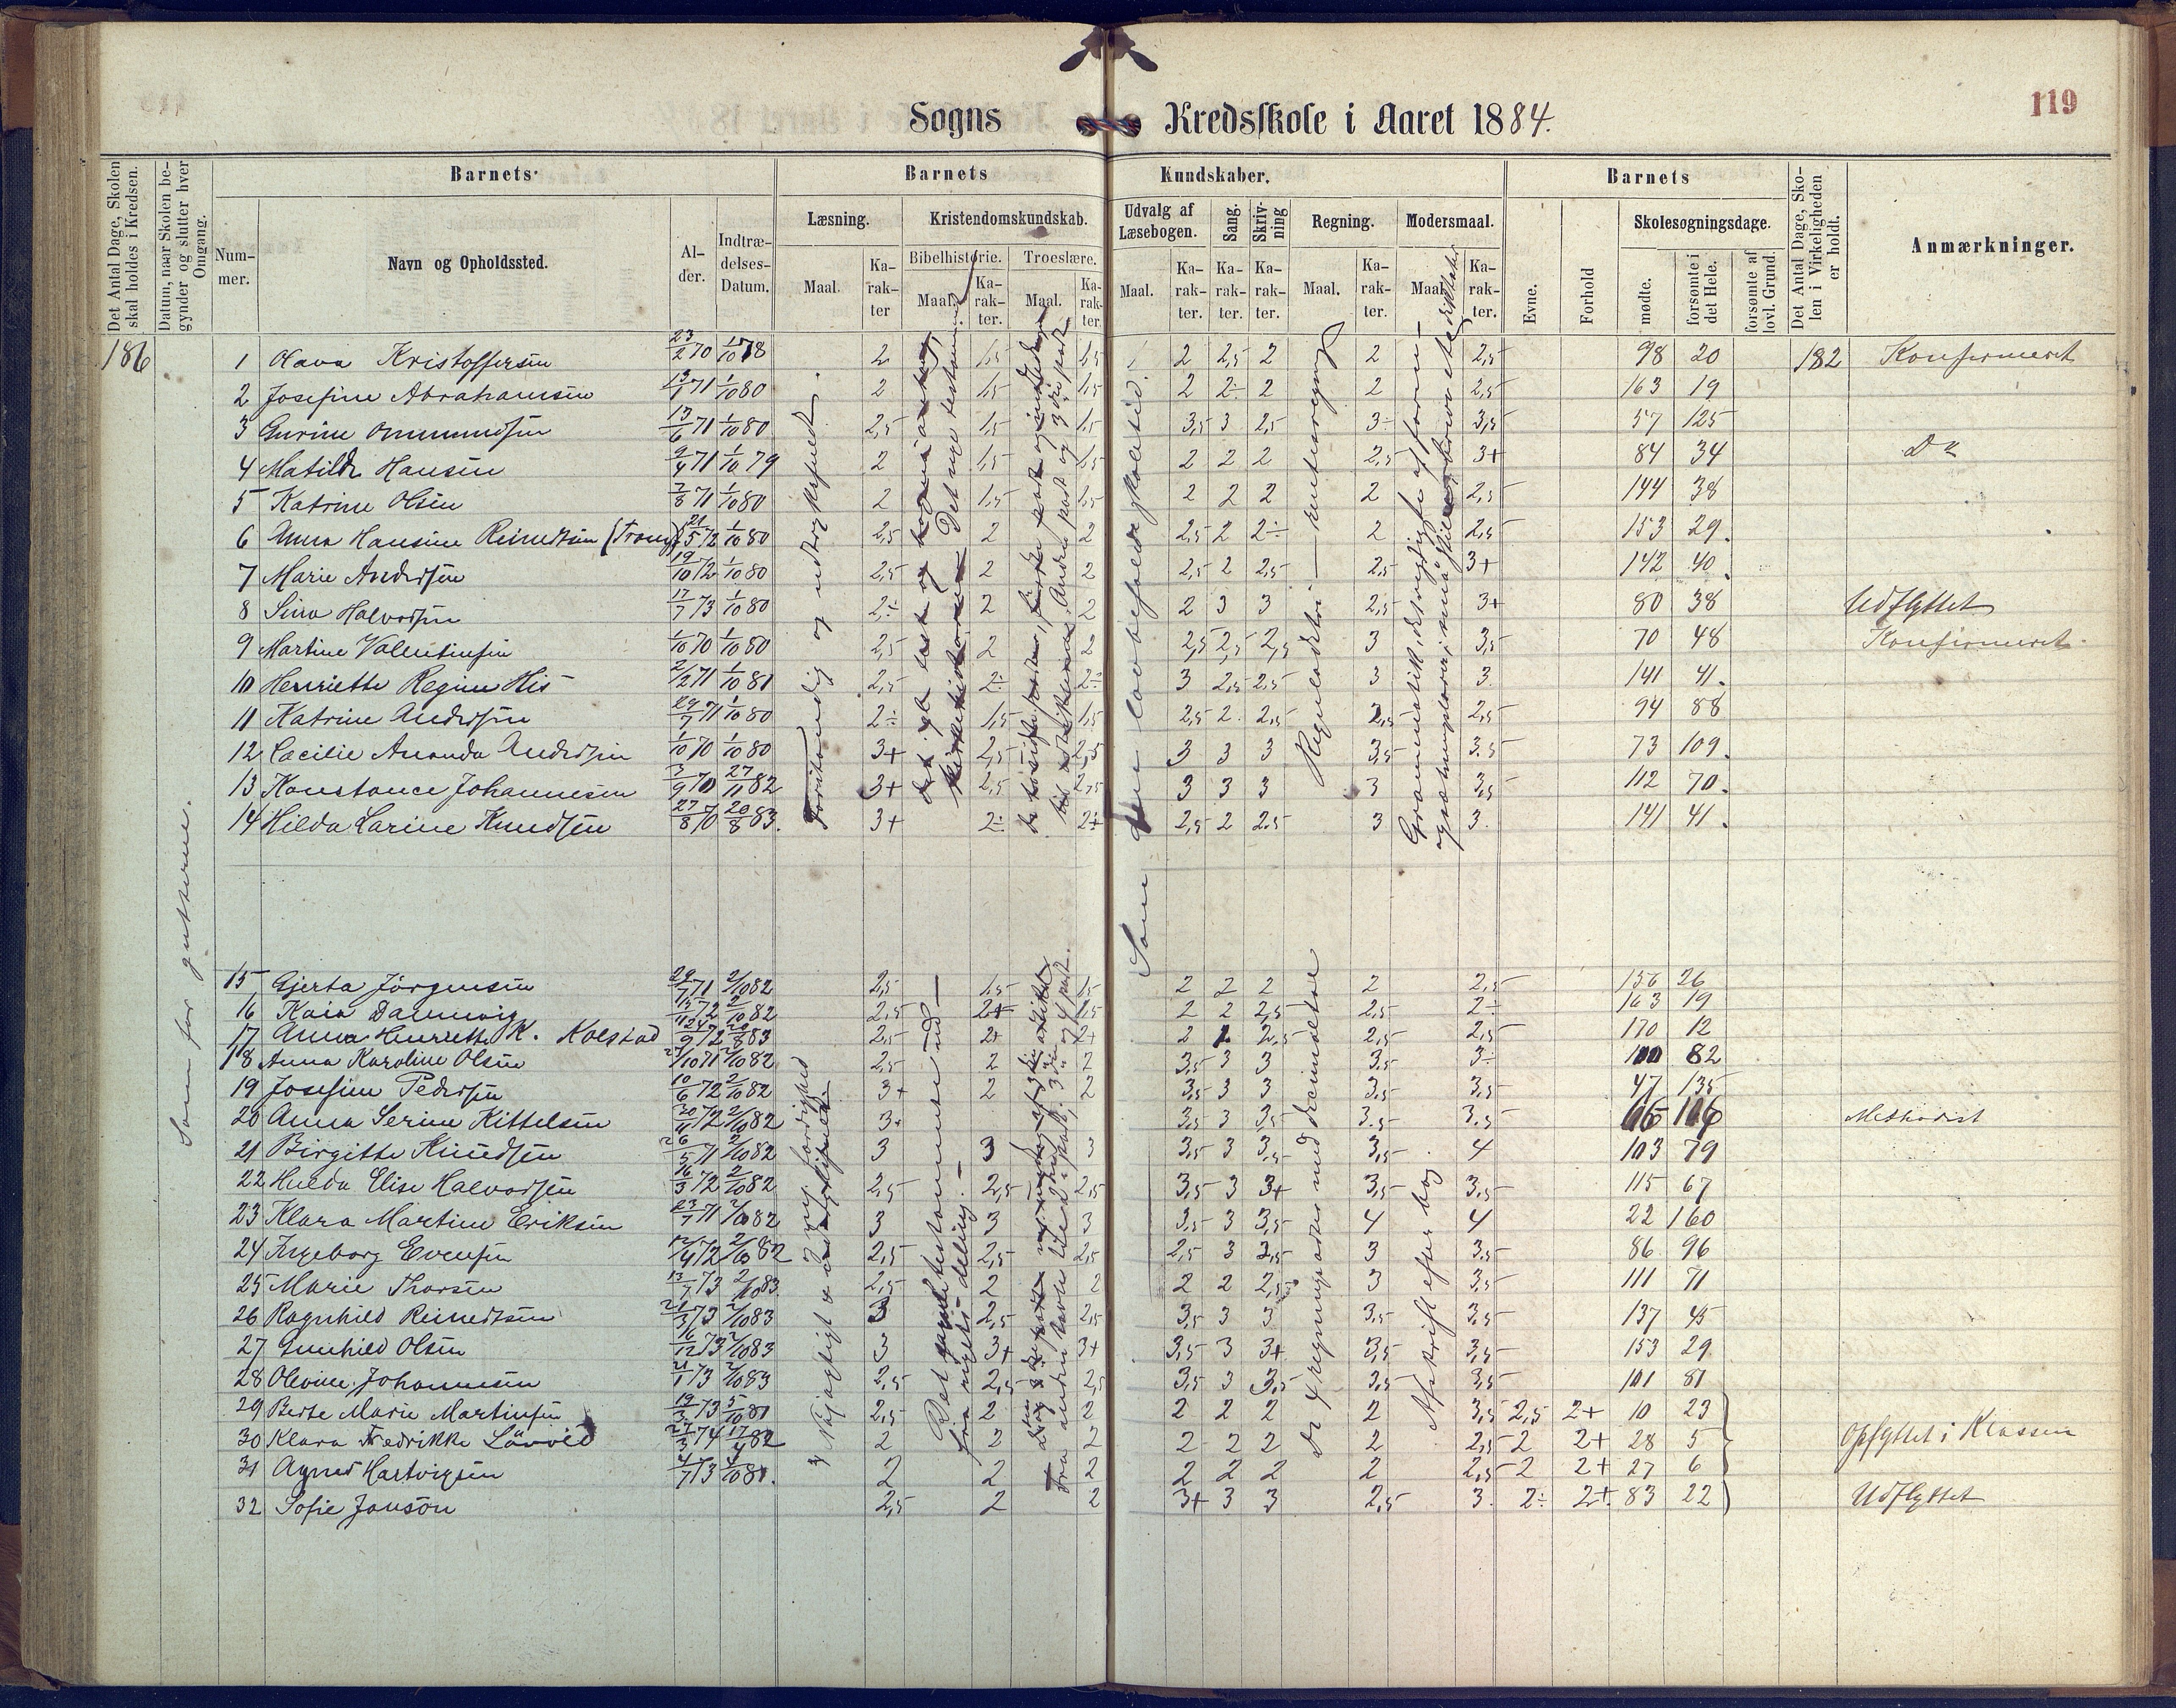 119
Sogns Kredsskole i Aaret 1884.
Det Antal Dage, Skolen skal holdes i Kredsen.
Datum, naar Skolen begynder og slutter hver Omgang.
Barnets
Barnets Kundskaber.
Barnets
Det Antal Dage, Skolen i Virkeligheden er holdt.
Anmærkninger.
Nummer.
Navn og Opholdssted.
Alder.
Indtrædelses-Datum.
Læsning.
Kristendomskundskab.
Bibelhistorie.
Troeslære.
Udvalg af Læsebogen.
Sang.
Skrivning
Regning.
Modersmaal.
Evne.
Forhold
Skolesøgningsdage.
mødte.
forsømte i det Hele.
forsømte af lovl. Grund.
Maal.
Karakter
Maal.
Karakter.
Maal.
Karakter.
Maal.
Karakter.
Karakter.
Karakter.
Maal.
Karakter.
Maal.
Karakter.
186
Som for gutterne.
1 Olava Kristoffersen 23/2 70 2 1,5 1,5 2 2,5 2 2 2,5 98 20 182 Konfirmeret
2 Josefine Abrahamsen 71 1/10 80 2 1,5 1,5 2 2÷ 2 2 2,5 163 19
3 Gurine Ommundsen 13/6 71 1/10 80 2,5 1,5 1,5 3,5 3 2,5 3÷ 3,5 57 125
4 Matilde Hansen 71 1/10 79 2 1,5 1,5 2 2 2 2,5 3+ 84 34 Do
5 Katrine Olsen 71 1/10 80 2 1,5 1,5 2 2 2 2 2,5 144 38
6 Anna Hansine Reinertsen 21/5 72 1/10 80 2,5 2 2 2,5 2 2÷ 2 2,5 153 29.
7 Marie Andersen 19/10 72 1/10 80 2,5 2 2 2,5 2 2,5 2,5 3+ 142 40.
8 Sina Halvorsen 17/7 73 1/10 80 2÷ 2 2 2 3 3 2,5 3+ 80 38 Udflyttet
9 Martine Valentinsen 1/10 70 1/10 80 2,5 2 2 2,5 2,5 2,5 3 3,5 70 48 Konfirmeret
10 Henriette Regine His 2/2 71 1/10 81 2,5 2÷ 2÷ 3 2,5 2,5 3 3. 141 41.
11 Katrine Andersen 29/7 71 1/10 80 2÷ 1,5 1,5 2,5 2. 2,5 2,5 2,5 94 88
12 Cacilie Amanda Andersen 1/10 70 1/10 80 3+ 2,5 2,5 3 3 3 3,5 3.5 73 109.
13 Konstance Johannesen 3/9 70 27/11 82 3+ 2,5 2,5 3 3 3 3 3,5 112 70.
14 Hilda Larine Knudsen 27/8 70 20/8 83. 3+ 2÷ 2÷ 2,5 2 2.5 3 3. 141 41.
Forstandig og udtryksfuldt.
Som den lovbefalede skoletid.
15 Gjerta Jörgensen 29/7 71 2/10 82 2,5 1,5 1,5 2 2 2 2 2,5 156 26
16 Kaia Dannevig 72 2/10 82 2,5 2+ 1,5 2 2 2,5 2,5 2÷ 163 19
17 Anna Henriette K. Kolstad 24/9 72 20/8 83 2,5 2+ 2+ 2 1 2,5 2,5 2,5 170 12
18 Anna Karoline Olsen 71 2/10 82 2,5 2 2 3,5 3 3 3,5 3÷ 100 82
19 Josefine Pedersen 10/6 72 2/10 82 3+ 2 2 3,5 3 3 3,5 3,5 47 135
20 Anna Serine Kittelsen 72 2/10 82 3+ 3,5 3 3,5 3.5 3.5 Methodist
21 Birgitte Knudsen 71 2/10 82 3 3 3 3,5 3 3,5 3,5 4 103 79
22 Hulda Elise Halvorsen 16/3 72 2/10 82 2,5 2,5 2,5 3,5 3 3+ 3,5 3,5 115 67
23 Klara Martine Eriksen 23/7 71 2/10 82 3 3 3 3,5 3 3,5 4 4 22 160
24 Ingeborg Evensen 72 2/10 82 2,5 2,5 2,5 2,5 3 3,5 3 3.5 86 96
25 Marie Thorsen 13/7 73 2/10 83. 2,5 2 2 2 2 2,5 3 3,5 111 71
26 Ragnhild Reinertsen 73 2/10 83 3 2,5 2,5 3,5 3 3 3,5 3,5 137 45
27 Gunhild Olsen 16/12 73 2/10 83 3 3+ 3+ 3,5 3 3+ 3,5 3,5 153 29
28 Olevine Johannesen 21/1 73 2/10 83 2,5 2,5 2,5 3,5 3 3,5 3,5 3,5 101 81
29 Berte Marie Martinsen 19/3 73 5/10 81 2,5 2 2 2 2 2 2 3,5 2,5 2+ 10 23
30 Klara Fredrikke Lövold 27/3 74 17/4 82 2 2 2 2 2 2 2 2,5 2 2+ 28 5 Opflyttet i Klassen
31 Agnes Hartvigsen 4/7 73 4/10 81. 2 2 2 2 2 2 2 2,5 2 2+ 27 6
32 Sofie Jonson 2,5 2 2 3+ 3 3 2,5 3. 2÷ 2+ 83 22 Udflyttet
Det gamle testamente
De 4 regningsarter med decimaltal
Afskrift efter bog.